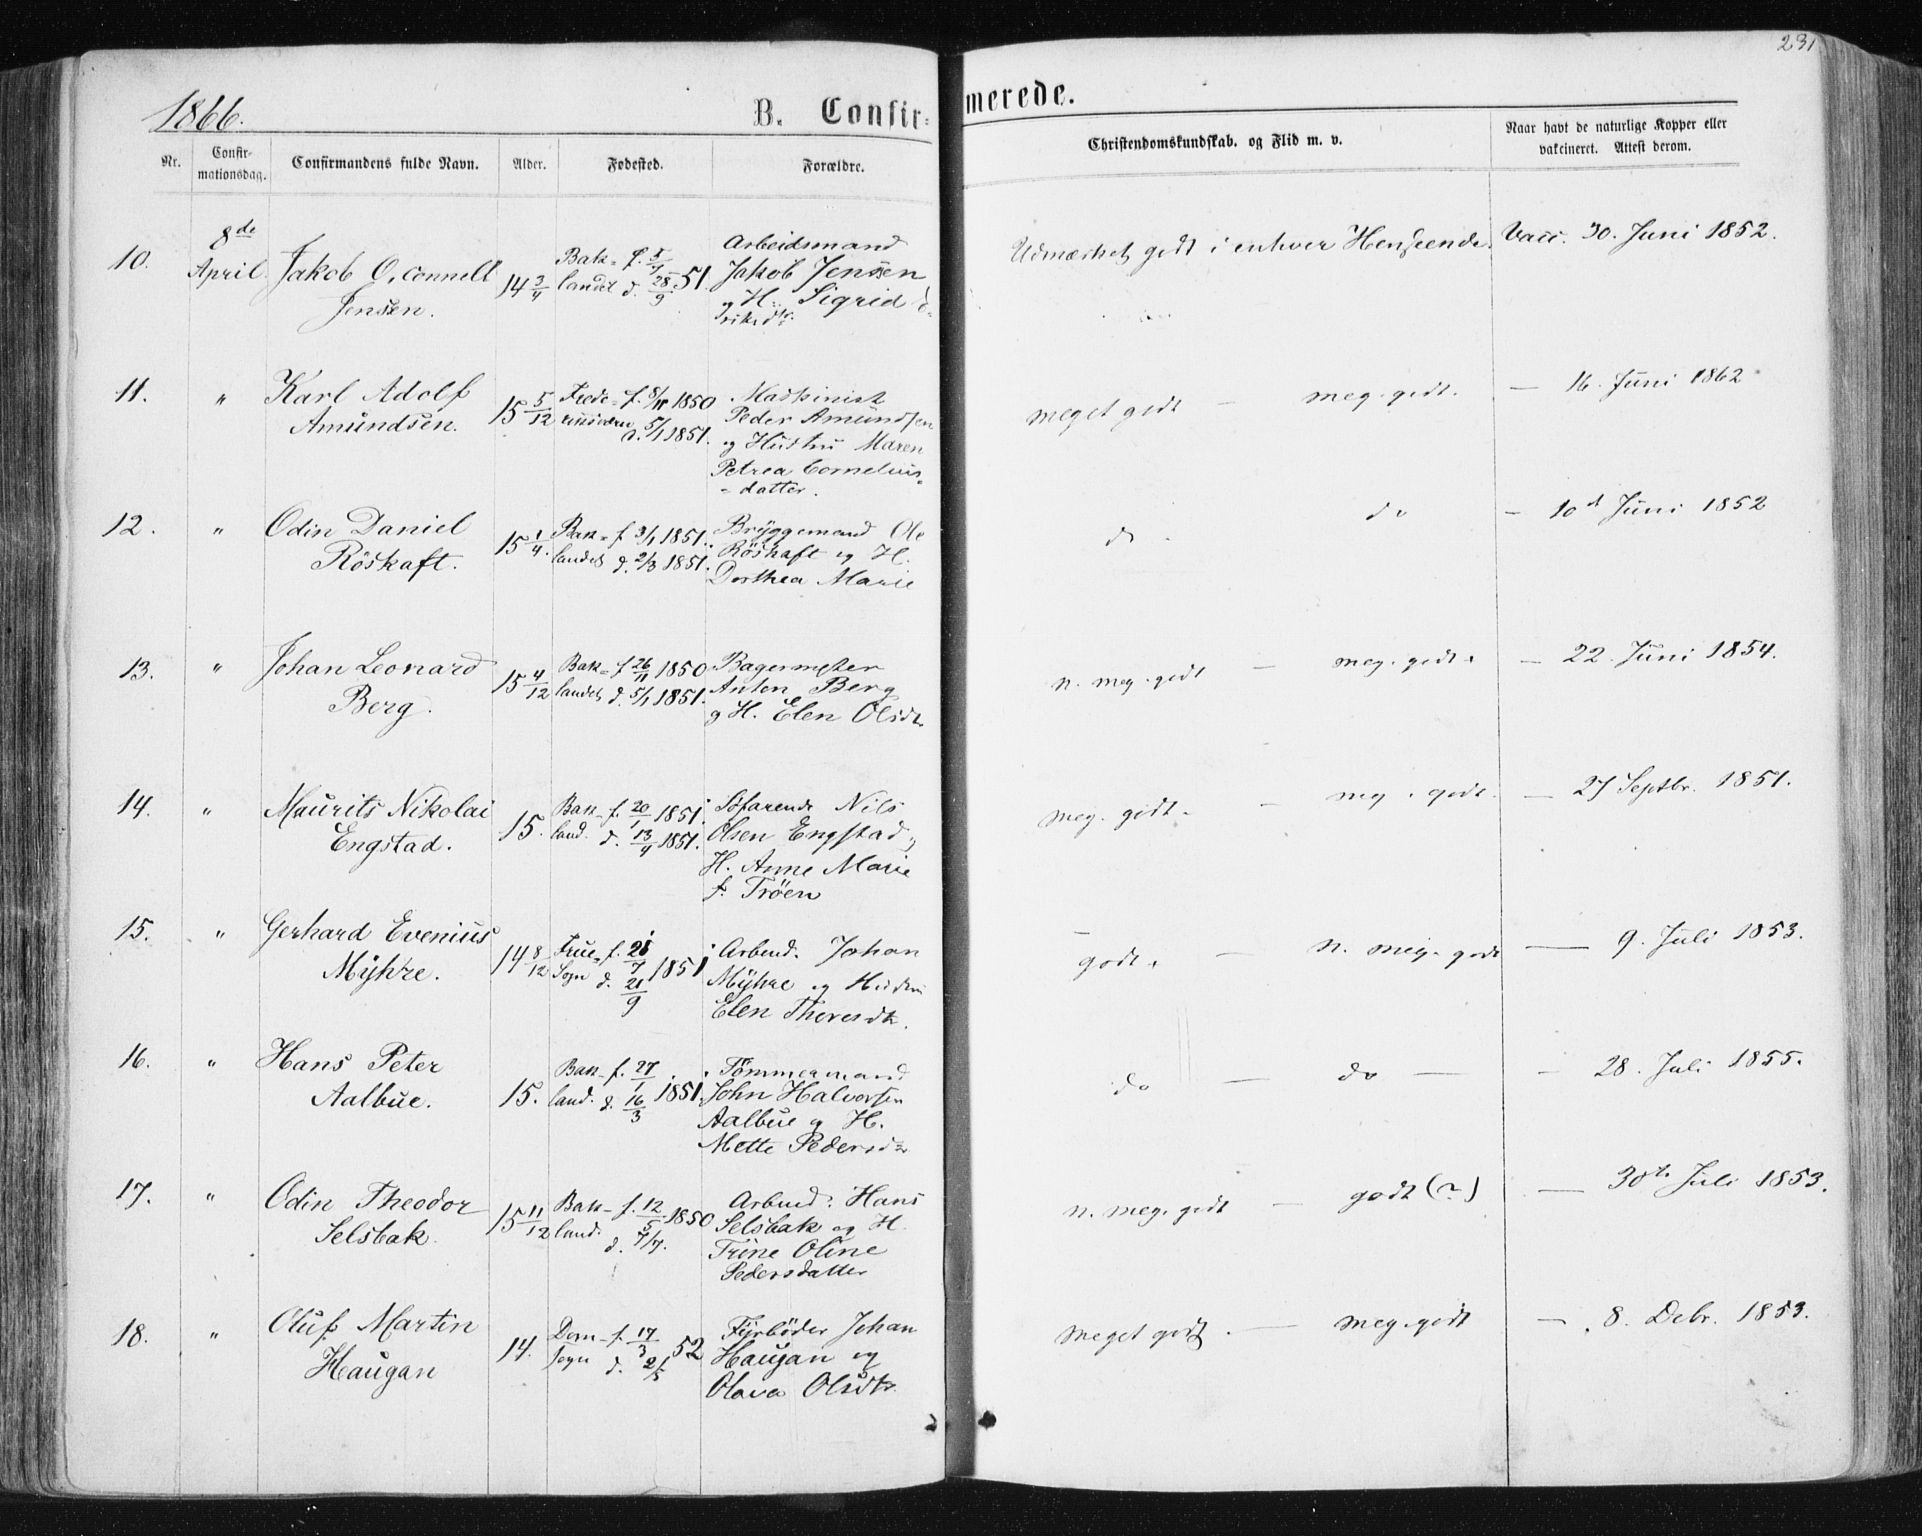 231
1866.
B. Confir=
merede.
Nr.
Confir-
mationsdag.
Confirmandens fulde Navn.
Alder.
Fødested.
Forældre.
Christendomskundskab, og Flid m. v.
Naar havt de naturlige Kopper eller
vakcineret. Attest derom.
10.
8de
April
Jakob O, Connell
Jensen.
14 3/4
Bak= f. 5/7
landet d. 28/9 51.
Arbeidsmand
Jakob Jensen
og H. Sigrid
Udmærket godt i enhver Henseende.
Vacc. 30. Juni 1852.
11.
"
Karl Adolf
Amundsen.
15 5/12
Frede= f. 8/11 1850
d. 5/1 1851.
Maskinist
Peder Amundsen
og Hustru Maren
Petrea Cornelius=
=datter.
meget godt — meg. godt.
— 16. Juni 1862
12.
"
Odin Daniel
Röskaft.
15 1/4.
Bak= f. 3/1 1851.
landet d. 2/3 1851.
Bryggemand Ole
Röskaft og H.
Dorthea Marie
do do
— 10d Juni 1852
13.
"
Johan Leonard
Berg.
15 4/12
Bak= f. 26/11 1850
landet d. 5/1 1851.
Bagermester
Anton Berg
og H. Elen Olsdtr
n. meg. godt — meg. godt.
— 22. Juni 1854.
14.
"
Maurits Nikolai
Engstad.
15.
Bak- f. 20/1 1851.
land. d. 13/4 1851.
Söfarende Nils
Olsen Engstad og
H. Anne Marie
f. Tröen
meg. godt. — meg. godt.
— 27 Septbr. 1851.
15.
"
Gerhard Evenius
Myhre.
14 8/12
Frue= f. 28/7 1851
Sogn d. 21/9
Arbmd. Johan
Myhre og Hustru
Elen Thoresdtr.
godt. — n. meg. godt
— 9. Juli 1853.
16.
"
Hans Peter
Aalbue.
15.
Bak- f. 27/1
land. d. 16/3 1851.
Tömmermand
John Halvorsen
Aalbue og H.
Mette Pedersdtr
do — do —
- 28. Juli 1855.
17.
"
Odin Theodor
Selsbak.
15 11/12
Bak- f. 12/5 1850
land. d. 7/7.
Arbmd. Hans
Selsbak og H.
Trine Oline
Pedersdatter
n. meg. godt — godt (?)
— 30te Juli 1853.
18.
"
Oluf Martin
Haugan
14.
Dom- f. 17/3 52
Sogn d. 2/5
Fyrböder Johan
Haugan og
Olava Olsdtr.
meget godt. — meg. godt
— 8. Debr. 1853.